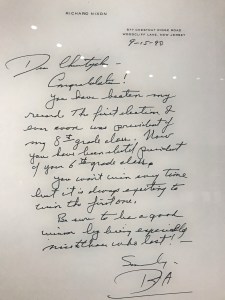 RICHARD NIXON
577 CHESTNUT RIDGE ROAD
WOODCLIFF LAKE, NEW JERSEY
9-15-90
Dear
Congratulations!
You have beaten my
record. The first election I
ever won was president of
my 8th grade class. Now
you have been elected president
of your 6th grade class.
You won't win every time
but it is always exciting to
win the first one.
Be sure to be a good
winner by being especially
nice to those who lost! -
Sincerely,